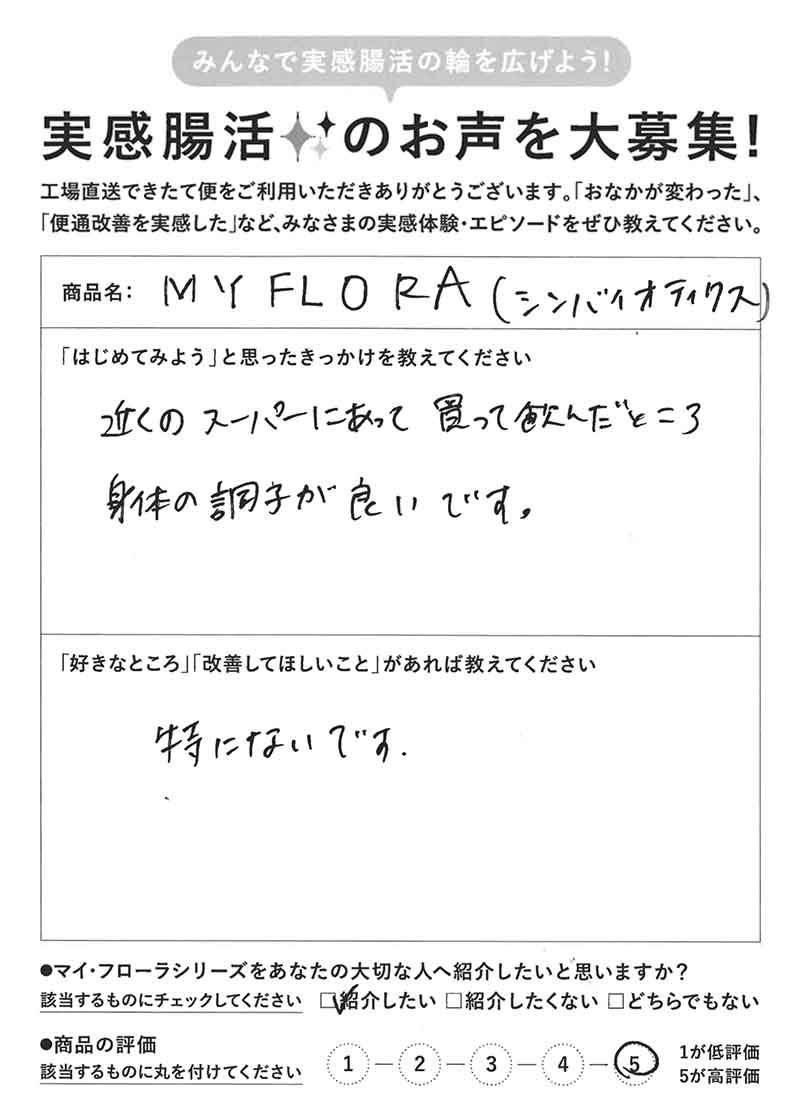 みんなで実感腸活の輪を広げよう!
実感腸活のお声を大募集!
工場直送できたて便をご利用いただきありがとうございます。「おなかが変わった」、
「便通改善を実感した」など、みなさまの実感体験・エピソードをぜひ教えてください。
商品名: MY FLORA (シンバイオティクス)
「はじめてみよう」と思ったきっかけを教えてください
近くのスーパーにあって 買って飲んだところ
身体の調子が良いです。
「好きなところ」「改善してほしいこと」があれば教えてください
特にないです.
●マイ・フローラシリーズをあなたの大切な人へ紹介したいと思いますか?
該当するものにチェックしてください ☑紹介したい □紹介したくない □どちらでもない
●商品の評価
該当するものに丸を付けてください
1 — 2 — 3 — 4 — 5
1が低評価
5が高評価